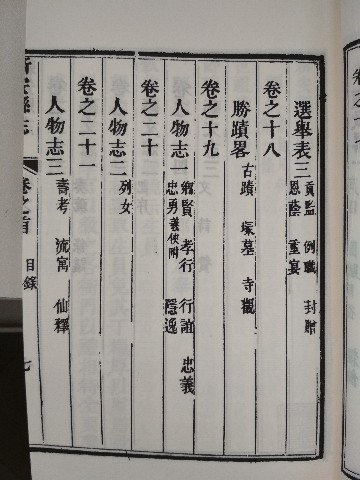 選舉表三 貢監 例職 封贈
恩蔭 重宴
卷之十八
勝蹟畧 古蹟 塚墓 寺觀
卷之十九
人物志一 鄉賢 孝行 行誼 忠義
忠勇義使附 隱逸
卷之二十
人物志二 列女
卷之二十一
人物志三 耆考 流寓 仙釋
縣志
卷之首 目錄 七